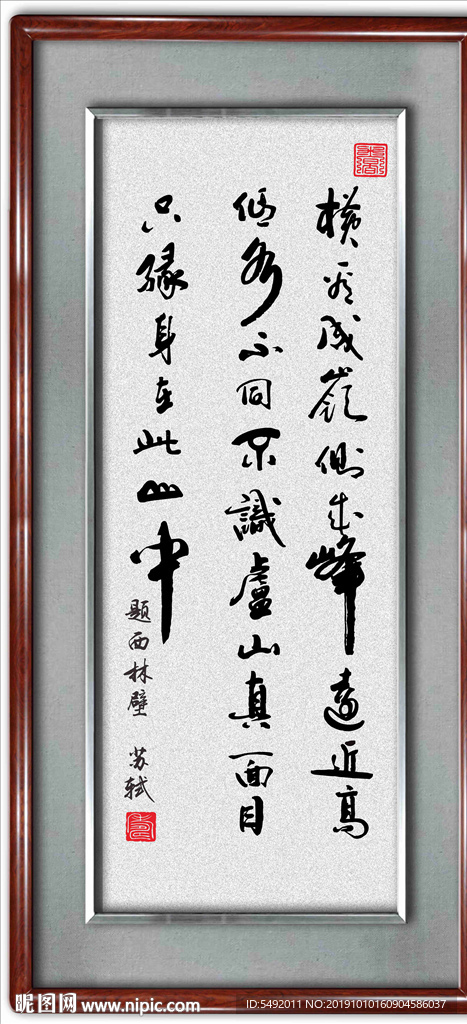 横看成嶺側成峰遠近高
低各不同不識盧山真面目
只緣身在此山中
题西林壁 苏轼
昵图网 www.nipic.com
ID:5492011 NO:20191010160904586037